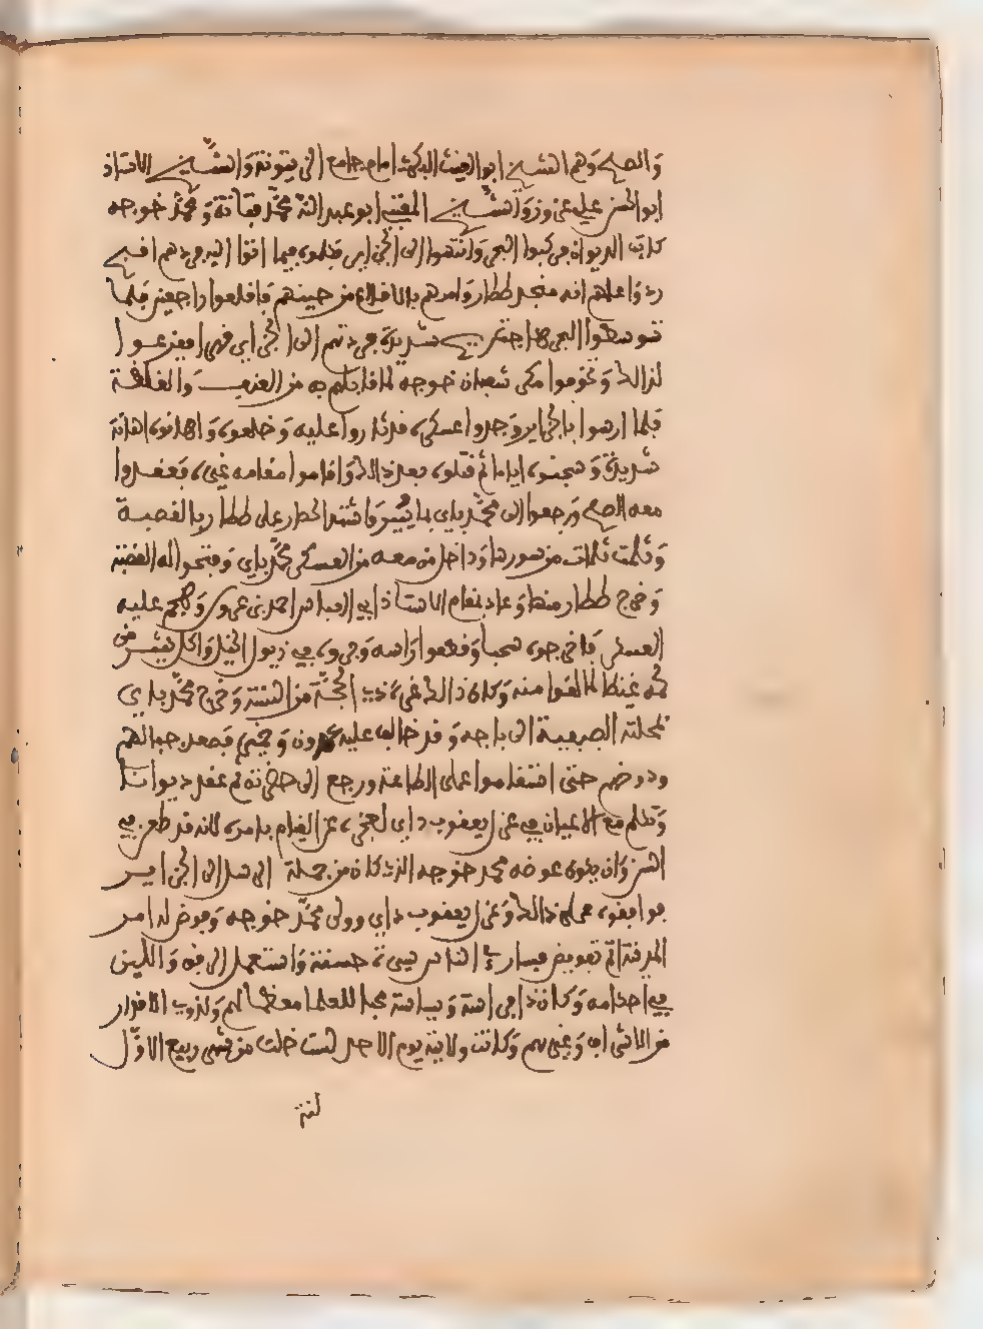 والصلح وهم الشيخ ابو الغيث البكري امام جامع الزيتونة والشيخ الاستاذ
ابو الحسن علي عزوز والشيخ المفتي ابو عبد الله محمد فتاتة ومحمد خوجه
كاتب الديوان فركبوا البحر وانتهوا الى الجزاير فقبلوه فيما اتوا اليه فردهم اقبح
رد واعلمهم انه منجد ططار وامرهم بالاقلاع من حينهم فاقلعوا راجعين فلما
توسطوا البحر هاجت ريح شديدة فردتهم الى الجزاير قهرا ففزعوا
لذالك وتخوفوا مكر شعبان خوجه لما قابلهم به من العنف والغلظة
فلما ارسوا بالجزاير وجدوا عسكره قد ثاروا عليه وخلعوه واهانوه اهانة
شديدة وسجنوه اياما ثم قتلوه بعد ذالك واقاموا مقامه غيره فعقدوا
معه الصلح ورجعوا الى محمد باي بما يسر واشتد الحصار على ططار بالقصبة
وثلمت ثلمات من سورها وداخل من معه من العسكر محمد باي وفتحوا له القصبة
وخرج ططار منها وعاد بمقام الاستاذ ابي العباس احمد بن عروس وهجم عليه
العسكر فاخرجوه سحبا وقطعوا راسه وجروه في ذيول الخيل واكل بعضهم من
لحمه غيظا لما لقوا منه وكان ذالك غرة ذي الحجة من السنة وخرج محمد باي
بمحلته الصيفية الى باجه وقد خالف عليه عمدون وخمير فصعد جبالهم
ودوخهم حتى استقاموا على الطاعة ورجع الى حضرته ثم عقد ديوانا
وتكلم مع الاعيان في عزل يعقوب داي لعجزه عن القيام بامره لانه قد طعن في
السن وان يكون عوضه محمد خوجه الذي كان من جملة الرسل الى الجزاير
فوافقوه على ذالك وعزل يعقوب داي وولى محمد خوجه وفوض له امر
المدينة اتم تفويض فسار في الناس سيرة حسنة واستعمل الرفق واللين
في احكامه وكان ذا فراسة وسياسة محبا للعلما معظما لهم ولذوي الاقدار
من الاشراف وغيرهم وكانت ولايته يوم الاحد لست خلت من شهر ربيع الاول